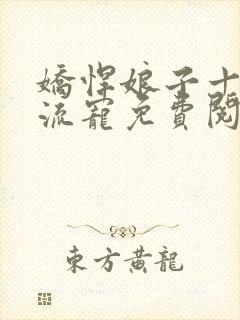 嬌悍娘子十
流寵免費閱
東方黃龍